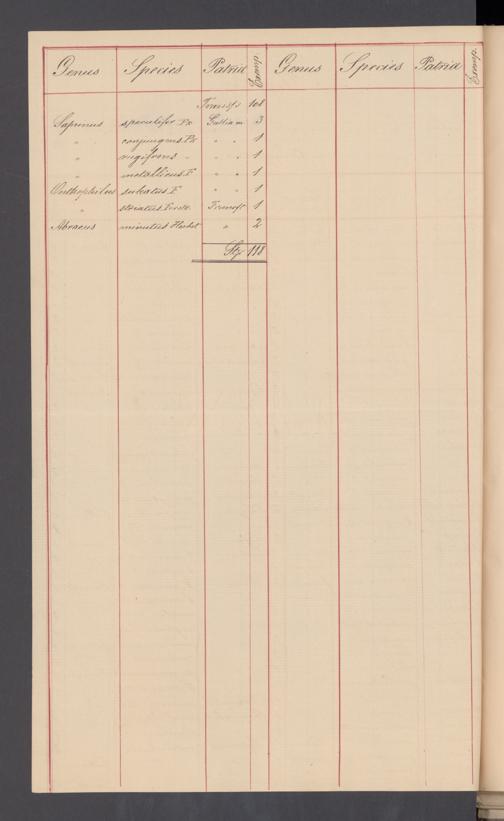 Genus Species Patria Exemp. Genus Species Patria Exemp.
Transp. 108
Saprinus speculifer Pz Gallia m 3
" conjungens Pz " " 1
" rugifrons " " " 1
" metallicus F " " 1
Onthophilus sulcatus F " " 1
" striatus Forst. 1
Abraeus minutus Herbst " 2
118